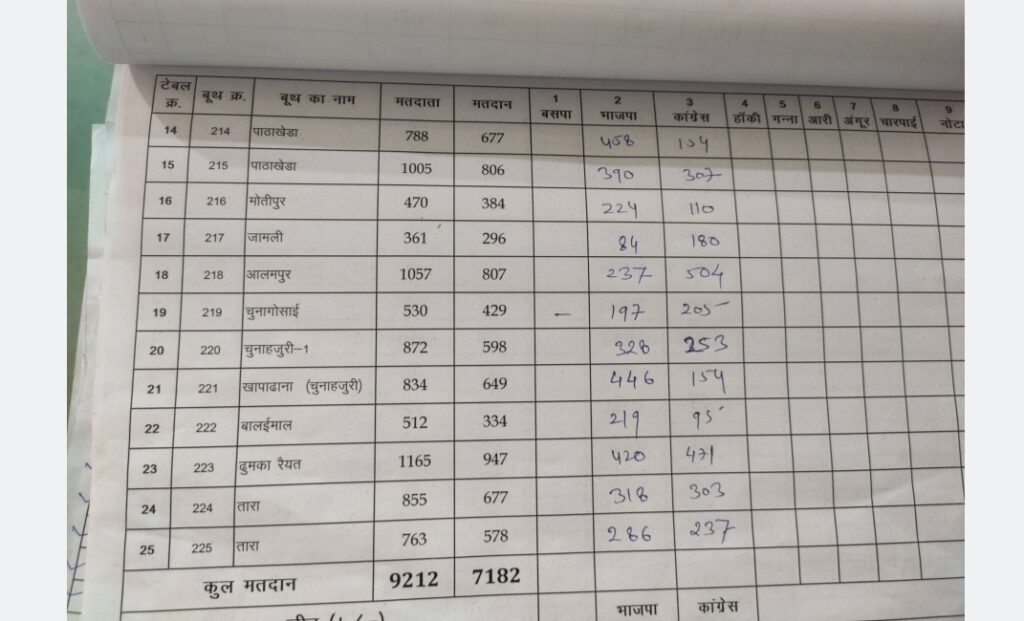 टेबल क्र. बूथ क्र. बूथ का नाम मतदाता मतदान 1 बसपा 2 भाजपा 3 कांग्रेस 4 हॉकी 5 गन्ना 6 आरी 7 अंगूर 8 चारपाई 9 नोटा
14 214 पाठाखेडा 788 677 458 154
15 215 पाठाखेडा 1005 806 390 307
16 216 मोतीपुर 470 384 224 110
17 217 जामली 361 296 84 180
18 218 आलमपुर 1057 807 237 504
19 219 चुनागोसाई 530 429 – 197 205
20 220 चुनाहजुरी-1 872 598 328 253
21 221 खापाढाना (चुनाहजुरी) 834 649 446 154
22 222 बालईमाल 512 334 219 95
23 223 ढुमका रैयत 1165 947 420 471
24 224 तारा 855 677 318 303
25 225 तारा 763 578 286 237
कुल मतदान 9212 7182
भाजपा कांग्रेस